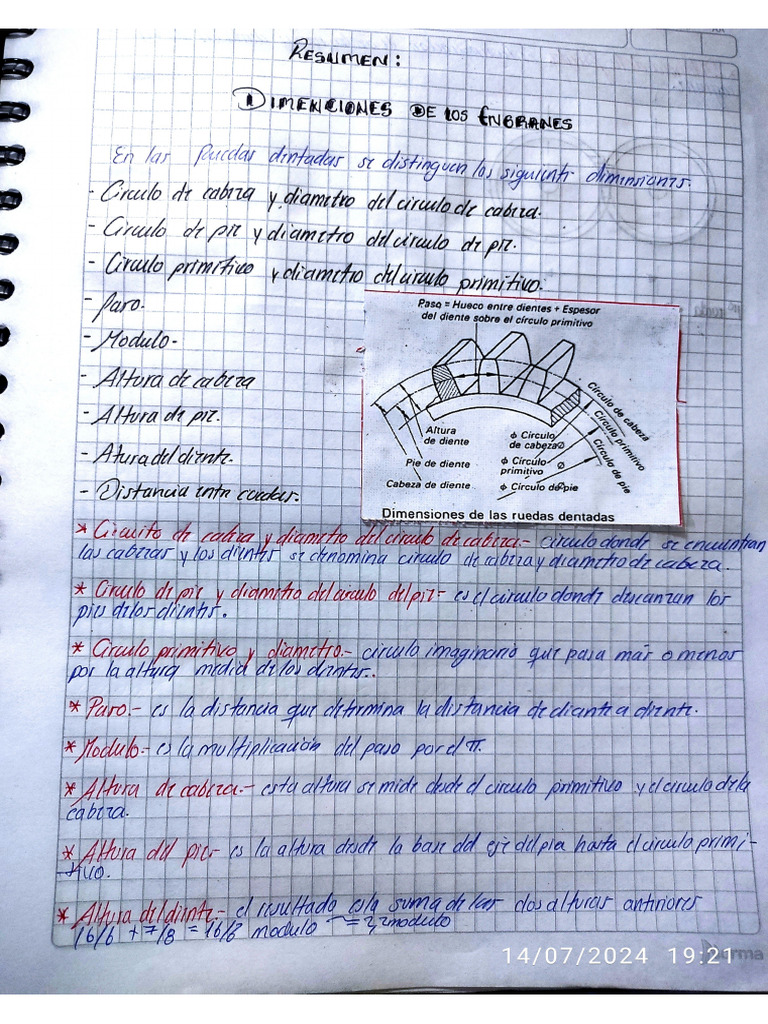 RESUMEN:
DIMENCIONES DE LOS ENGRANES
En las Ruedas dentadas se distinguen las siguiente dimensiones.
- Circulo de cabeza y diametro del circulo de cabeza.
- Circulo de pie y diametro del circulo de pie.
- Circulo primitivo y diametro del circulo primitivo.
- Paso.
- Modulo-
- Altura de cabeza
- Altura de pie.
- Atura del diente.
- Distancia entre ruedas.
Paso = Hueco entre dientes + Espesor
del diente sobre el círculo primitivo
Círculo de cabeza
Círculo primitivo
Círculo de pie
Altura
de diente
Pie de diente
Cabeza de diente
ϕ Círculo
de cabeza
ϕ Círculo
primitivo
ϕ Círculo de pie
Dimensiones de las ruedas dentadas
* Circuito de cabeza y diametro del circulo de cabeza.- circulo donde se encuentran
las cabezas y los dientes se denomina circulo de cabeza y diametro de cabeza.
* Circulo de pie y diametro del circulo del pie- es el circulo donde descanzan los
pies de los dientes.
* Circulo primitivo y diametro.- circulo imaginario que pasa más o menos
por la altura media de los dientes.
* Paso.- es la distancia que determina la distancia de diante a diente.
* Modulo.- es la multiplicación del paso por el π.
* Altura de cabeza.- esta altura se mide desde el circulo primitivo y el circulo de la
cabeza.
* Altura del pie- es la altura desde la base del eje del pie hasta el circulo primi-
-tivo.
* Altura del diente- el resultado es la suma de las dos alturas anteriores
16/6 + 7/8 = 16/6 modulo = 2,2 modulo
14/07/2024 19:21
norma